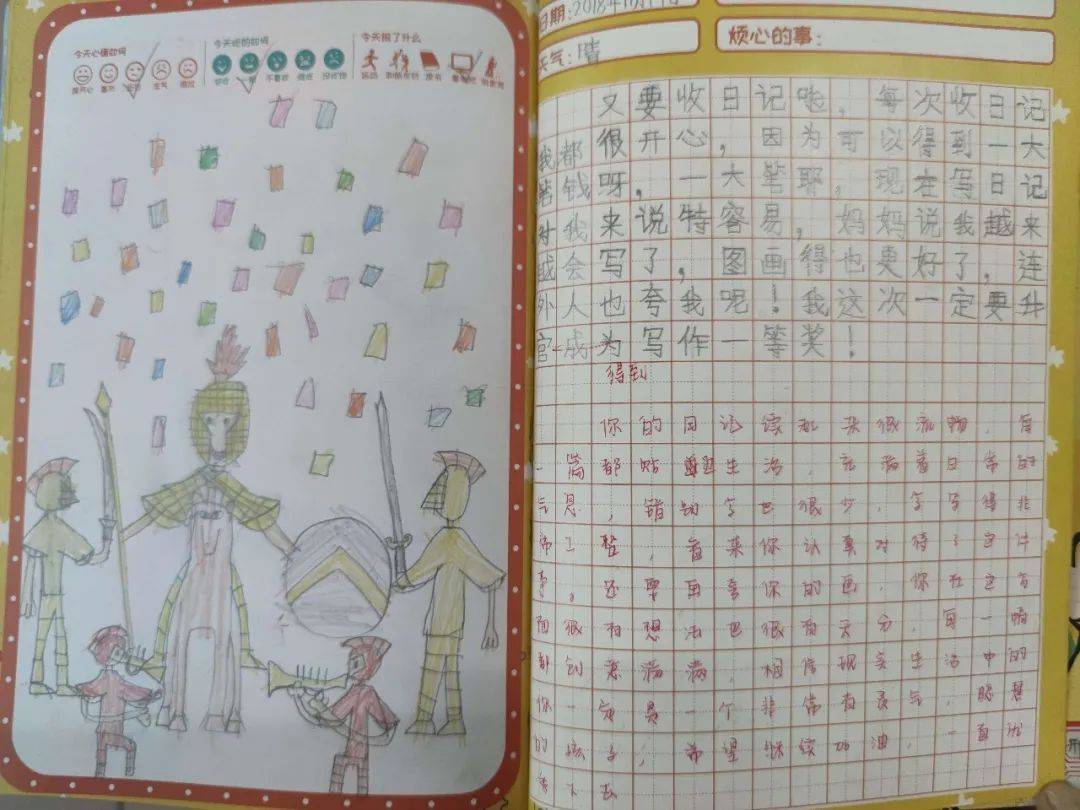 今天心情如何
很开心
今天吃的如何
不喜欢
今天做了什么
日期:2018年10月
天气:晴
烦心的事:
又要收日记啦,每次收日记
我都很开心,因为可以得到一大
笔钱呀,一大笔耶,现在写日记
对我来说特容易,妈妈说我越来
越会写了,图画得也更好了,连
外人也夸我呢!我这次一定要升
官成为写作一等奖!
得到
你的日记读起来很流畅,每
一篇都贴近生活,充满着日常的
气息,错别字也很少,字写得非
常工整,看来你认真对待了这件
事。还要再夸你的画,你在这方
面很有想法也很有天分,每一幅
都创意满满,相信现实生活中的
你一定是一个非常有灵气,聪慧
的孩子,希望继续加油,一直优
秀下去